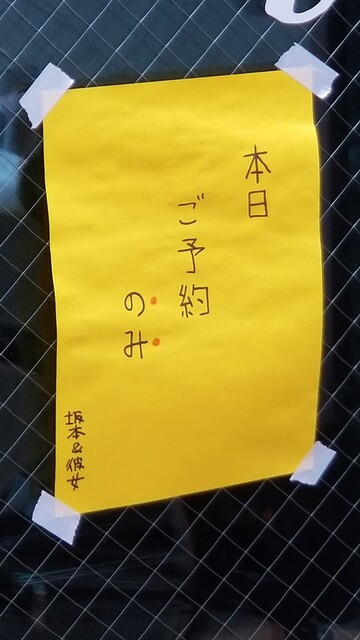 本日
ご予約
のみ
坂本&彼女